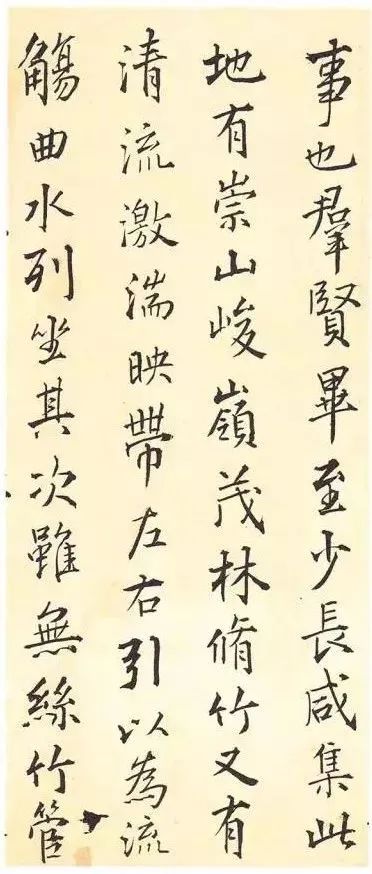 事也羣賢畢至少長咸集此
地有崇山峻嶺茂林脩竹又有
清流激湍映帶左右引以為流
觴曲水列坐其次雖無絲竹管